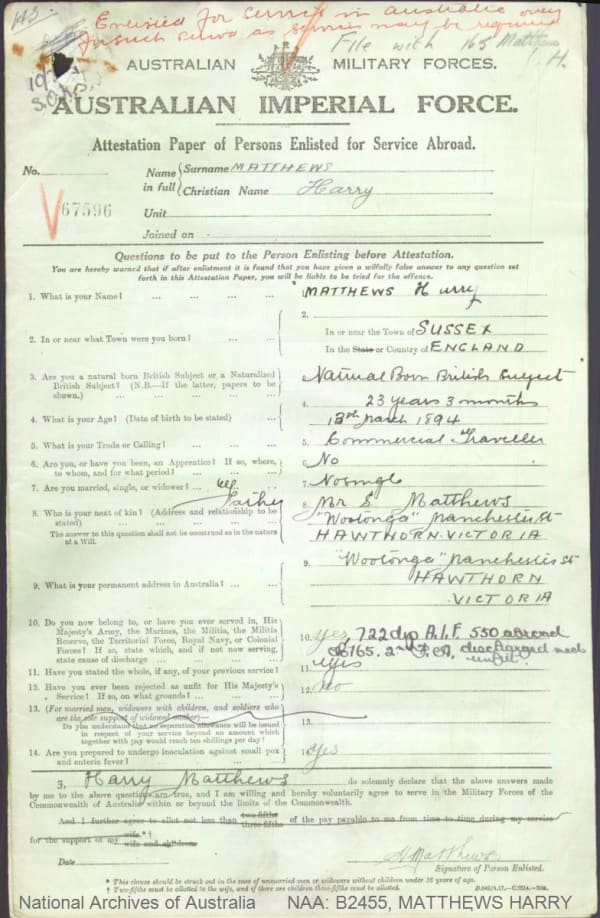 Enlisted for service in Australia over
such service as service may be required
File with 165 Matthews H.
AUSTRALIAN MILITARY FORCES.
AUSTRALIAN IMPERIAL FORCE.
Attestation Paper of Persons Enlisted for Service Abroad.
No. 67596
Name in full { Surname MATTHEWS
Christian Name Harry
Unit
Joined on
Questions to be put to the Person Enlisting before Attestation.
You are hereby warned that if after enlistment it is found that you have given a wilfully false answer to any question set
forth in this Attestation Paper, you will be liable to be tried for the offence.
1. What is your Name? ... ... ... ... MATTHEWS Harry
2. In or near what Town were you born? ... ... 2. In or near the Town of SUSSEX
In the State or Country of ENGLAND
3. Are you a natural born British Subject or a Naturalized
British Subject? (N.B.—If the latter, papers to be
shown.) ... ... ... ... Natural Born British Subject
4. What is your Age? (Date of birth to be stated) ... ... 4. 23 years 3 months
13th March 1894
5. What is your Trade or Calling? ... ... ... 5. Commercial Traveller
6. Are you, or have you been, an Apprentice? If so, where,
to whom, and for what period? ... ... ... 6. No
7. Are you married, single, or widower? ... ... 7. No single
8. Who is your next of kin? (Address and relationship to be
stated) ... ... ... ... Father 8. Mr S Matthews
"Wootonga" Manchester St
HAWTHORN. VICTORIA
The answer to this question shall not be construed as in the nature
of a Will.
9. What is your permanent address in Australia? ... ... 9. "Wootonga" Manchester St
HAWTHORN
VICTORIA
10. Do you now belong to, or have you ever served in, His
Majesty's Army, the Marines, the Militia, the Militia
Reserve, the Territorial Force, Royal Navy, or Colonial
Forces? If so, state which, and if not now serving,
state cause of discharge ... ... ... 10. yes, 722 dys A.I.F. 550 abroad
165. 2nd F. A. discharged med
unfit.
11. Have you stated the whole, if any, of your previous service? 11. yes
12. Have you ever been rejected as unfit for His Majesty's
Service? If so, on what grounds? ... ... 12. no
13. (For married men, widowers with children, and soldiers who
are the sole support of widowed mother)—
Do you understand that no separation allowance will be issued
in respect of your service beyond an amount which
together with pay would reach ten shillings per day? 13.
14. Are you prepared to undergo inoculation against small pox
and enteric fever? ... ... ... ... 14. Yes
I, Harry Matthews do solemnly declare that the above answers made
by me to the above questions are true, and I am willing and hereby voluntarily agree to serve in the Military Forces of the
Commonwealth of Australia within or beyond the limits of the Commonwealth.
And I further agree to allot not less than two-fifths three-fifths of the pay payable to me from time to time during my service
for the support of my wife.*† wife and children.
Date
H Matthews
Signature of Person Enlisted.
* This clause should be struck out in the case of unmarried men or widowers without children under 16 years of age.
† Two-fifths must be allotted to the wife, and if there are children three-fifths must be allotted.
National Archives of Australia NAA: B2455, MATTHEWS HARRY